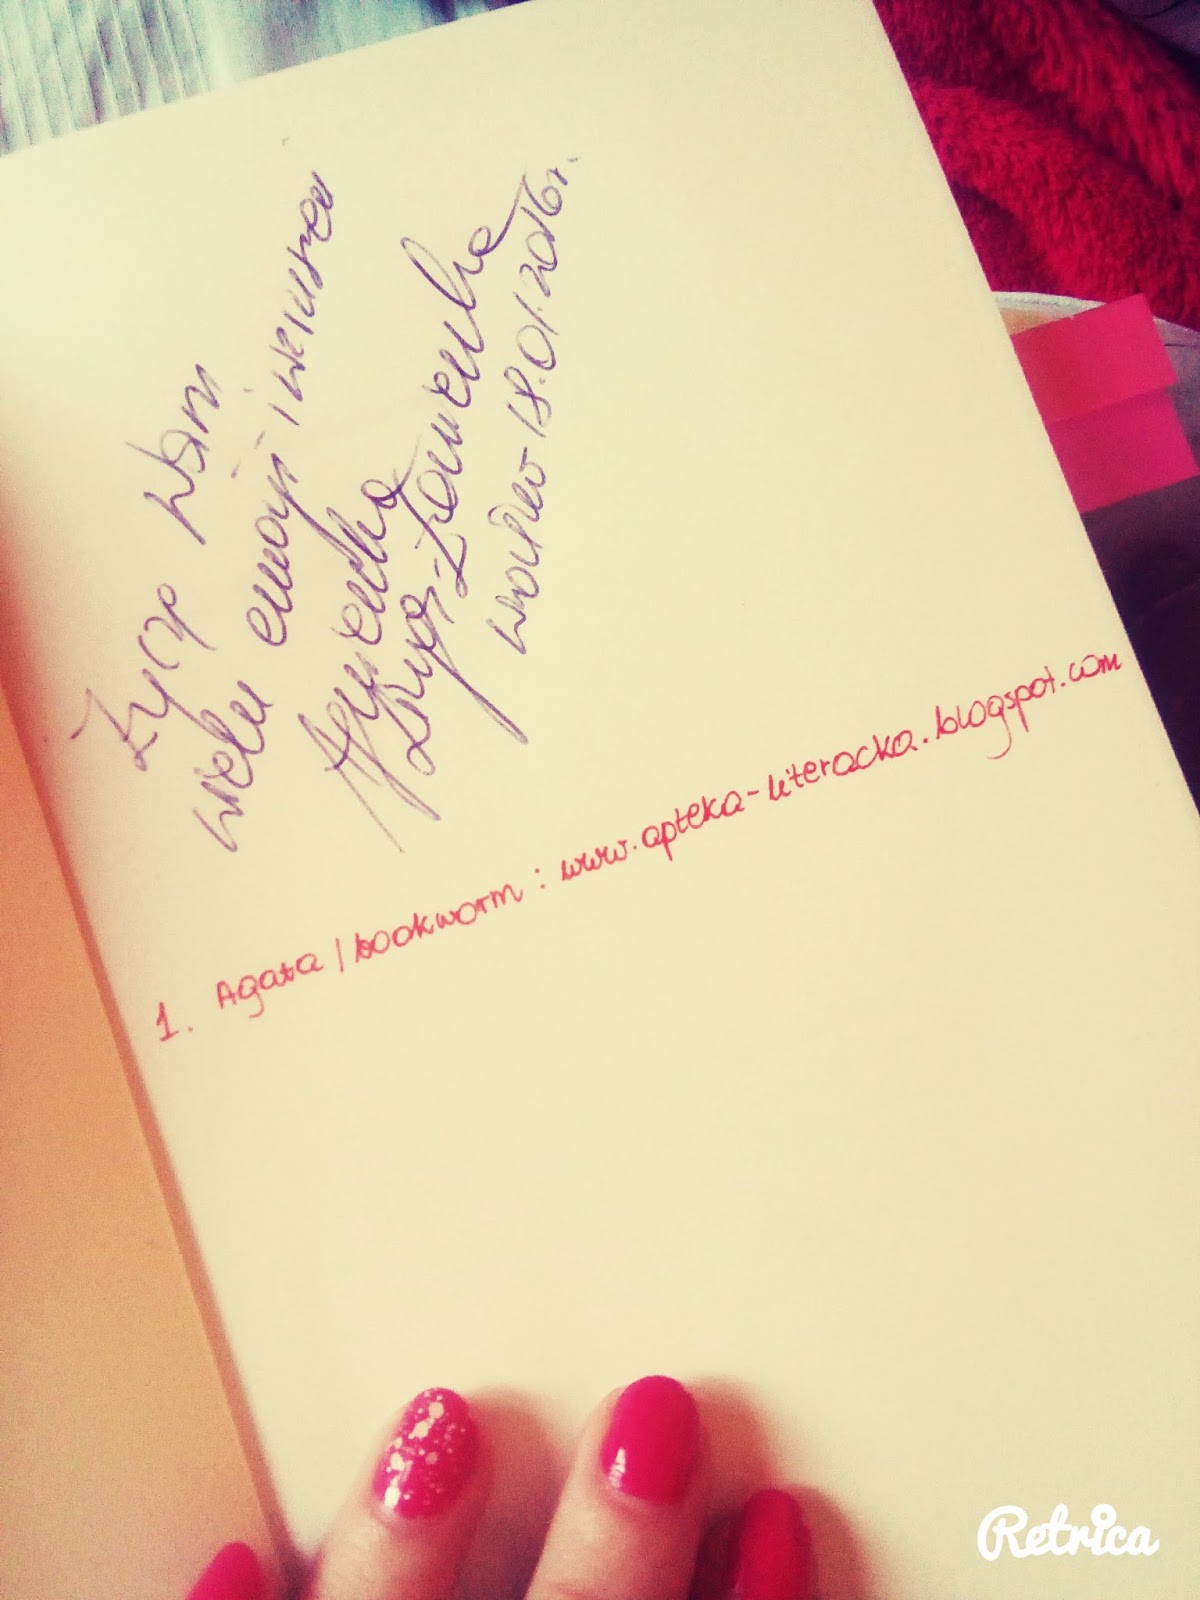 Życzę Wam
wielu emocji i wzruszeń
Agnieszka
Lingas-Łoniewska
Wrocław 18.01.2016r.
1. Agata / bookworm : www.apteka-literacka.blogspot.com
Retrica